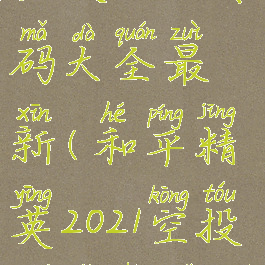 mǎ dà quán zuì
码大全最
xīn hé píng jīng
新(和平精
yīng kōng tóu
英2021空投